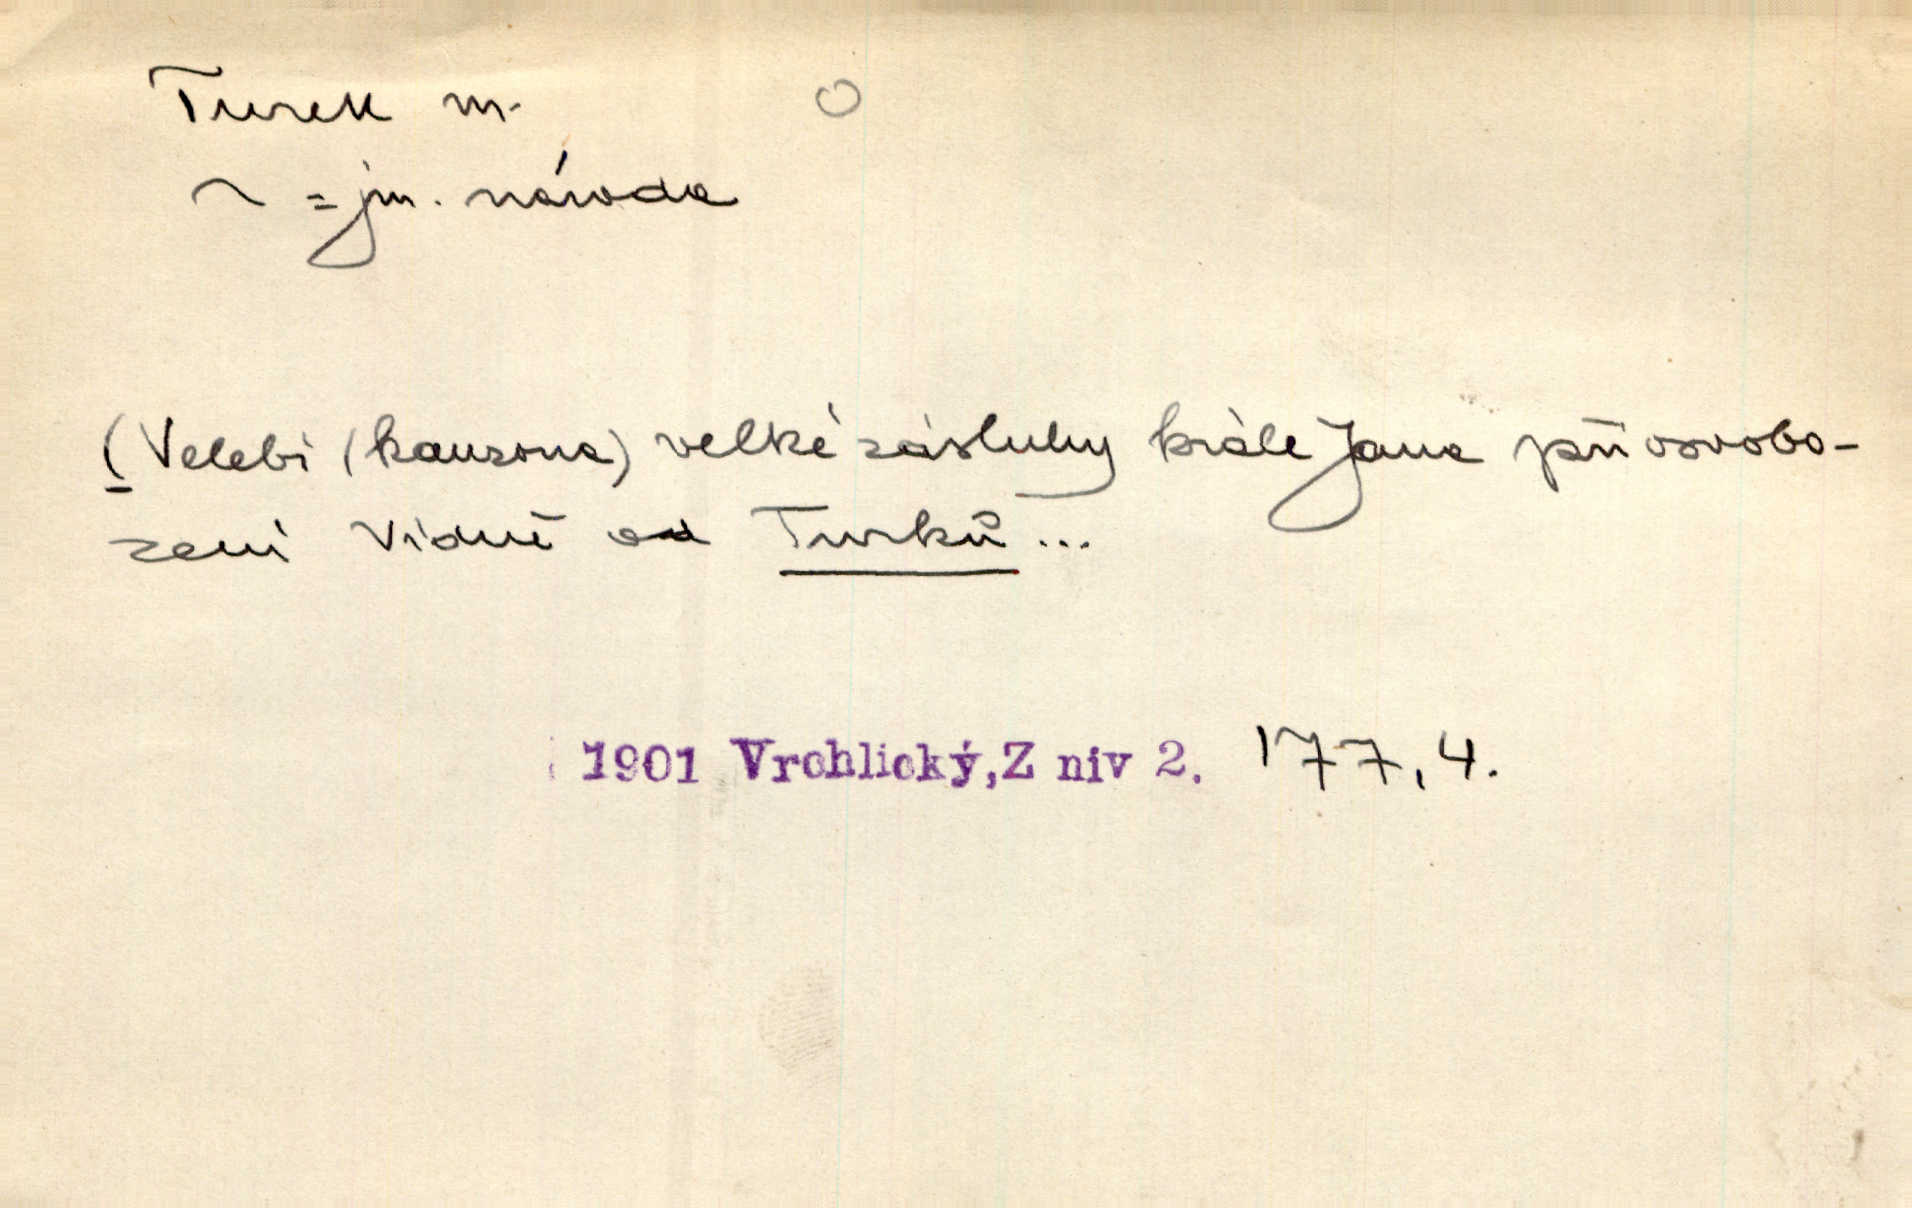 Turek m. O
~ = jm. národa
(Velebí (kanzona) velké zásluhy krále Jana při osvobo-
zení Vídně od Turků...
1901 Vrchlický,Z niv 2. 177,4.